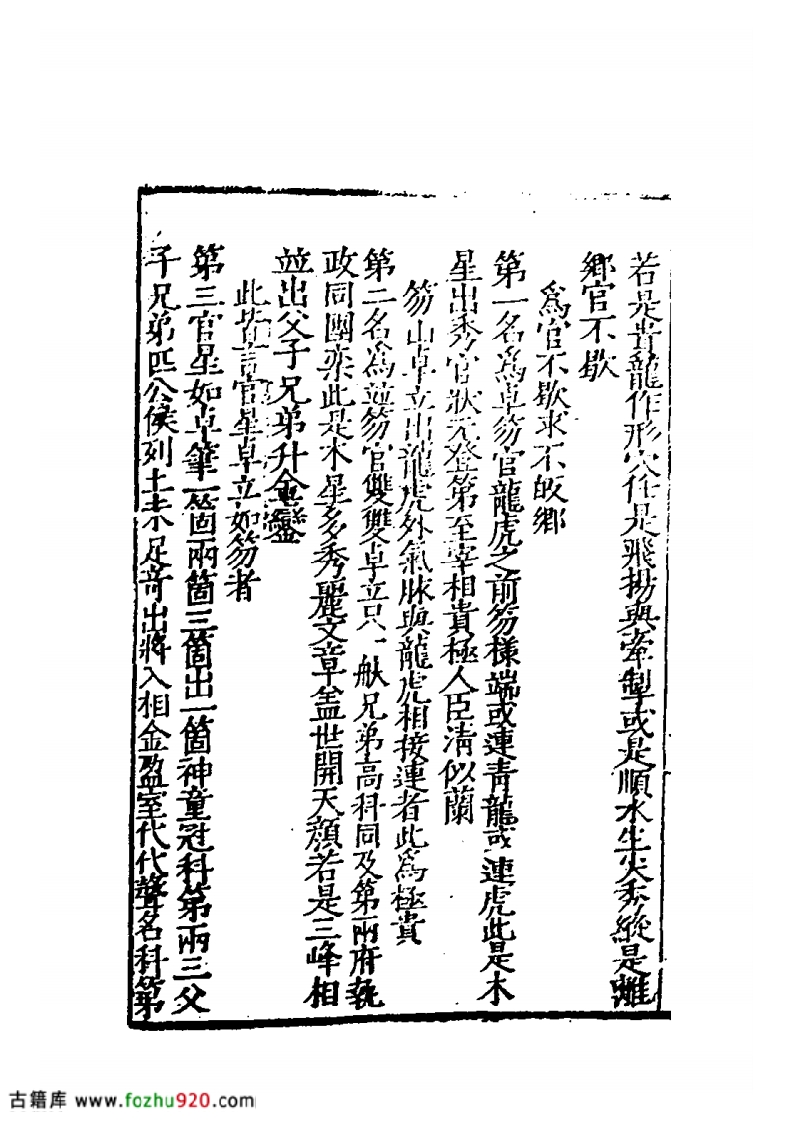 若是貴龍作形穴任是飛揚與牽制或是順水生尖秀縱是離
鄉官不歇
爲官不歇求不皈鄉
第一名爲卓笏官龍虎之前笏様端或連青龍或連虎此是木
星出秀官狀元登第至宰相貴極人臣清似蘭
笏山卓立出龍虎外氣脉與龍虎相接連者此爲極貴
第二名爲並笏官雙雙卓立只一般兄弟高科同及第兩府執
政同團欒此是木星多秀麗文章盖世開天顏若是三峰相
並出父子兄弟升金鑾
此皆言官星卓立如笏者
第三官星如卓筆一箇兩箇三箇出一箇神童冠科第兩三父
子兄弟匹公侯列土未足竒出將入相金盈室代代聲名科第
古籍库 www.fozhu920.com